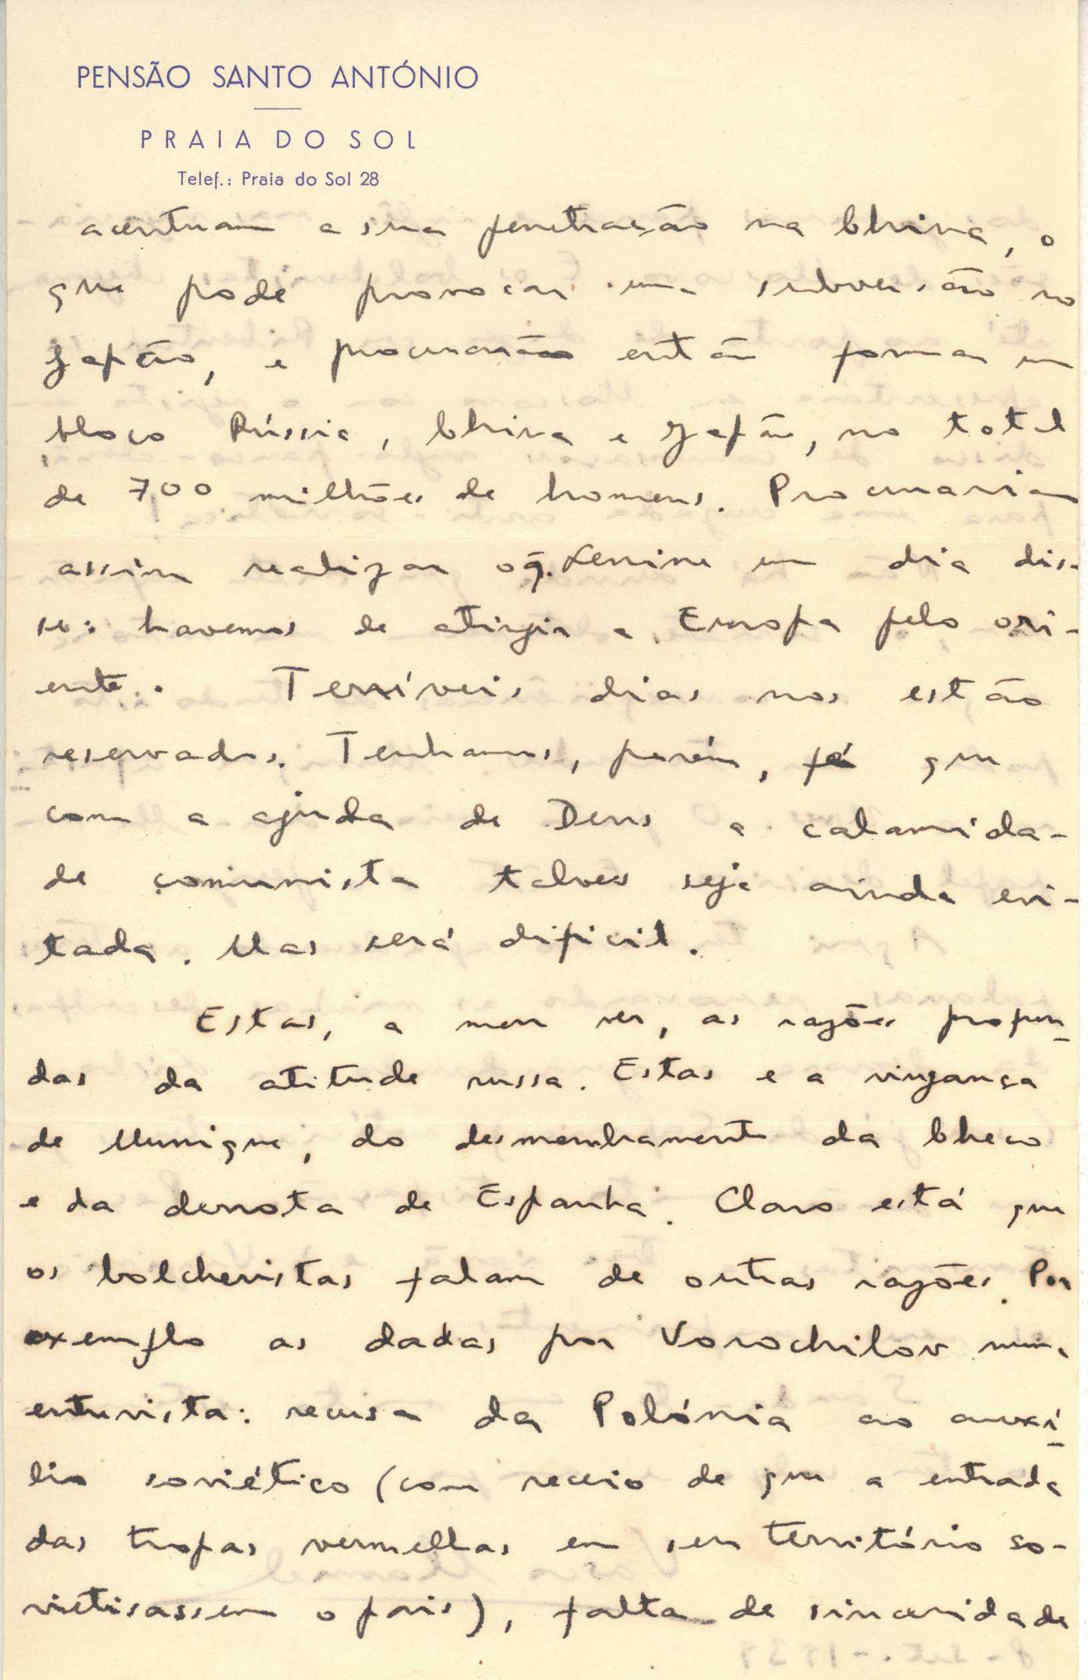 PENSÃO SANTO ANTÓNIO
PRAIA DO SOL
Telef.: Praia do Sol 28
acentuam a sua penetração na China, o
que pode provocar uma subversão no
Japão, e procurarão então formar um
bloco Rússia, China e Japão, no total
de 700 milhões de homens. Procurariam
assim realizar o q. Lenine um dia dis-
se: havemos de atingir a Europa pelo ori-
ente. Terríveis dias nos estão
reservados. Tenhamos, porém, fé que
com a ajuda de Deus a calamida-
de comunista talvez seja ainda evi-
tada. Mas será dificil.
Estas, a meu ver, as razões profun-
das da atitude russa. Estas e a vingança
de Munique, do desmembramento da Checo
e da derrota de Espanha. Claro está que
os bolchevistas falam de outras razões. Por
exemplo as dadas por Vorochilov numa
entrevista: recusa da Polónia ao auxí-
lio soviético (com receio de que a entrada
das tropas vermelhas em seu território so-
vietisassem o pais), falta de sinceridade